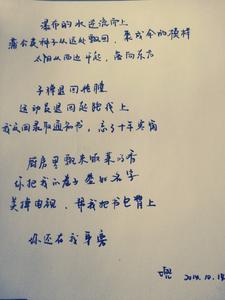 瀑布的水逆流而上
蒲公英种子从远处飘回，聚成伞的模样
太阳从西边升起，落向东方
子弹退回枪膛
运动员退回起跑线上
我交回录取通知书，忘了十年寒窗
厨房里飘来饭菜的香
你把我的卷子签好名字
关掉电视，帮我把书包背上
你还在我身旁